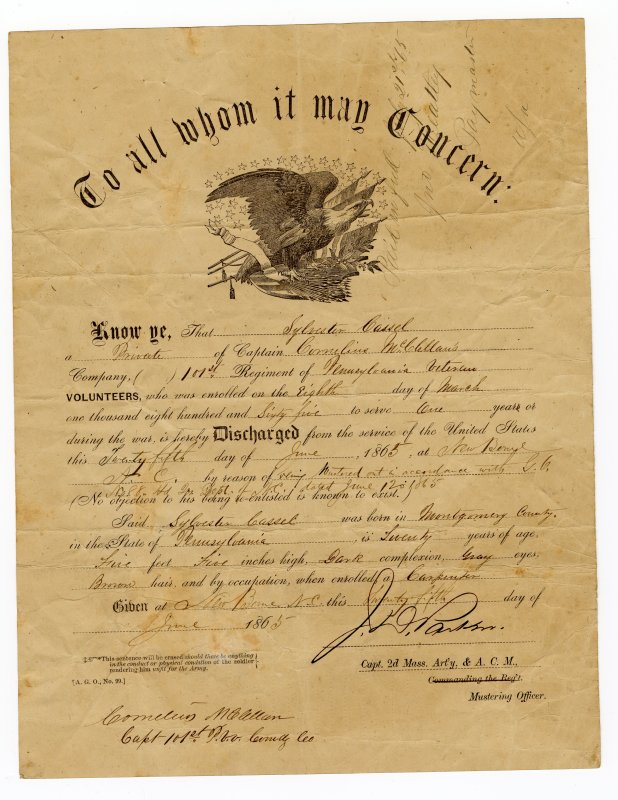 To all whom it may Concern:
Paid in full
Paymaster
Know ye, That Sylvester Cassel
a Private of Captain Cornelius McClellans
Company, ( ) 101st Regiment of Pennsylvania Veteran
VOLUNTEERS, who was enrolled on the Eighth day of March
one thousand eight hundred and Sixty five to serve One years or
during the war, is hereby Discharged from the service of the United States
this Twenty fifth day of June, 1865, at New Berne
N. C. by reason of being Mustered out in accordance with G. O.
dated June 12 1865
(No objection to his being re-enlisted is known to exist.
Said Sylvester Cassel was born in Montgomery County
in the State of Pennsylvania is Twenty years of age,
Five feet Five inches high, Dark complexion, Gray eyes,
Brown hair, and by occupation, when enrolled, a Carpenter
Given at New Berne N.C. this Twenty fifth day of
June 1865
*This sentence will be erased should there be anything
in the conduct or physical condition of the soldier
rendering him unfit for the Army.
[A. G. O., No. 99.]
Capt. 2d Mass. Art'y, & A. C. M.,
Commanding the Reg't.
Mustering Officer.
Cornelius McClellan
Capt 101st P.V.V. Comdg Co